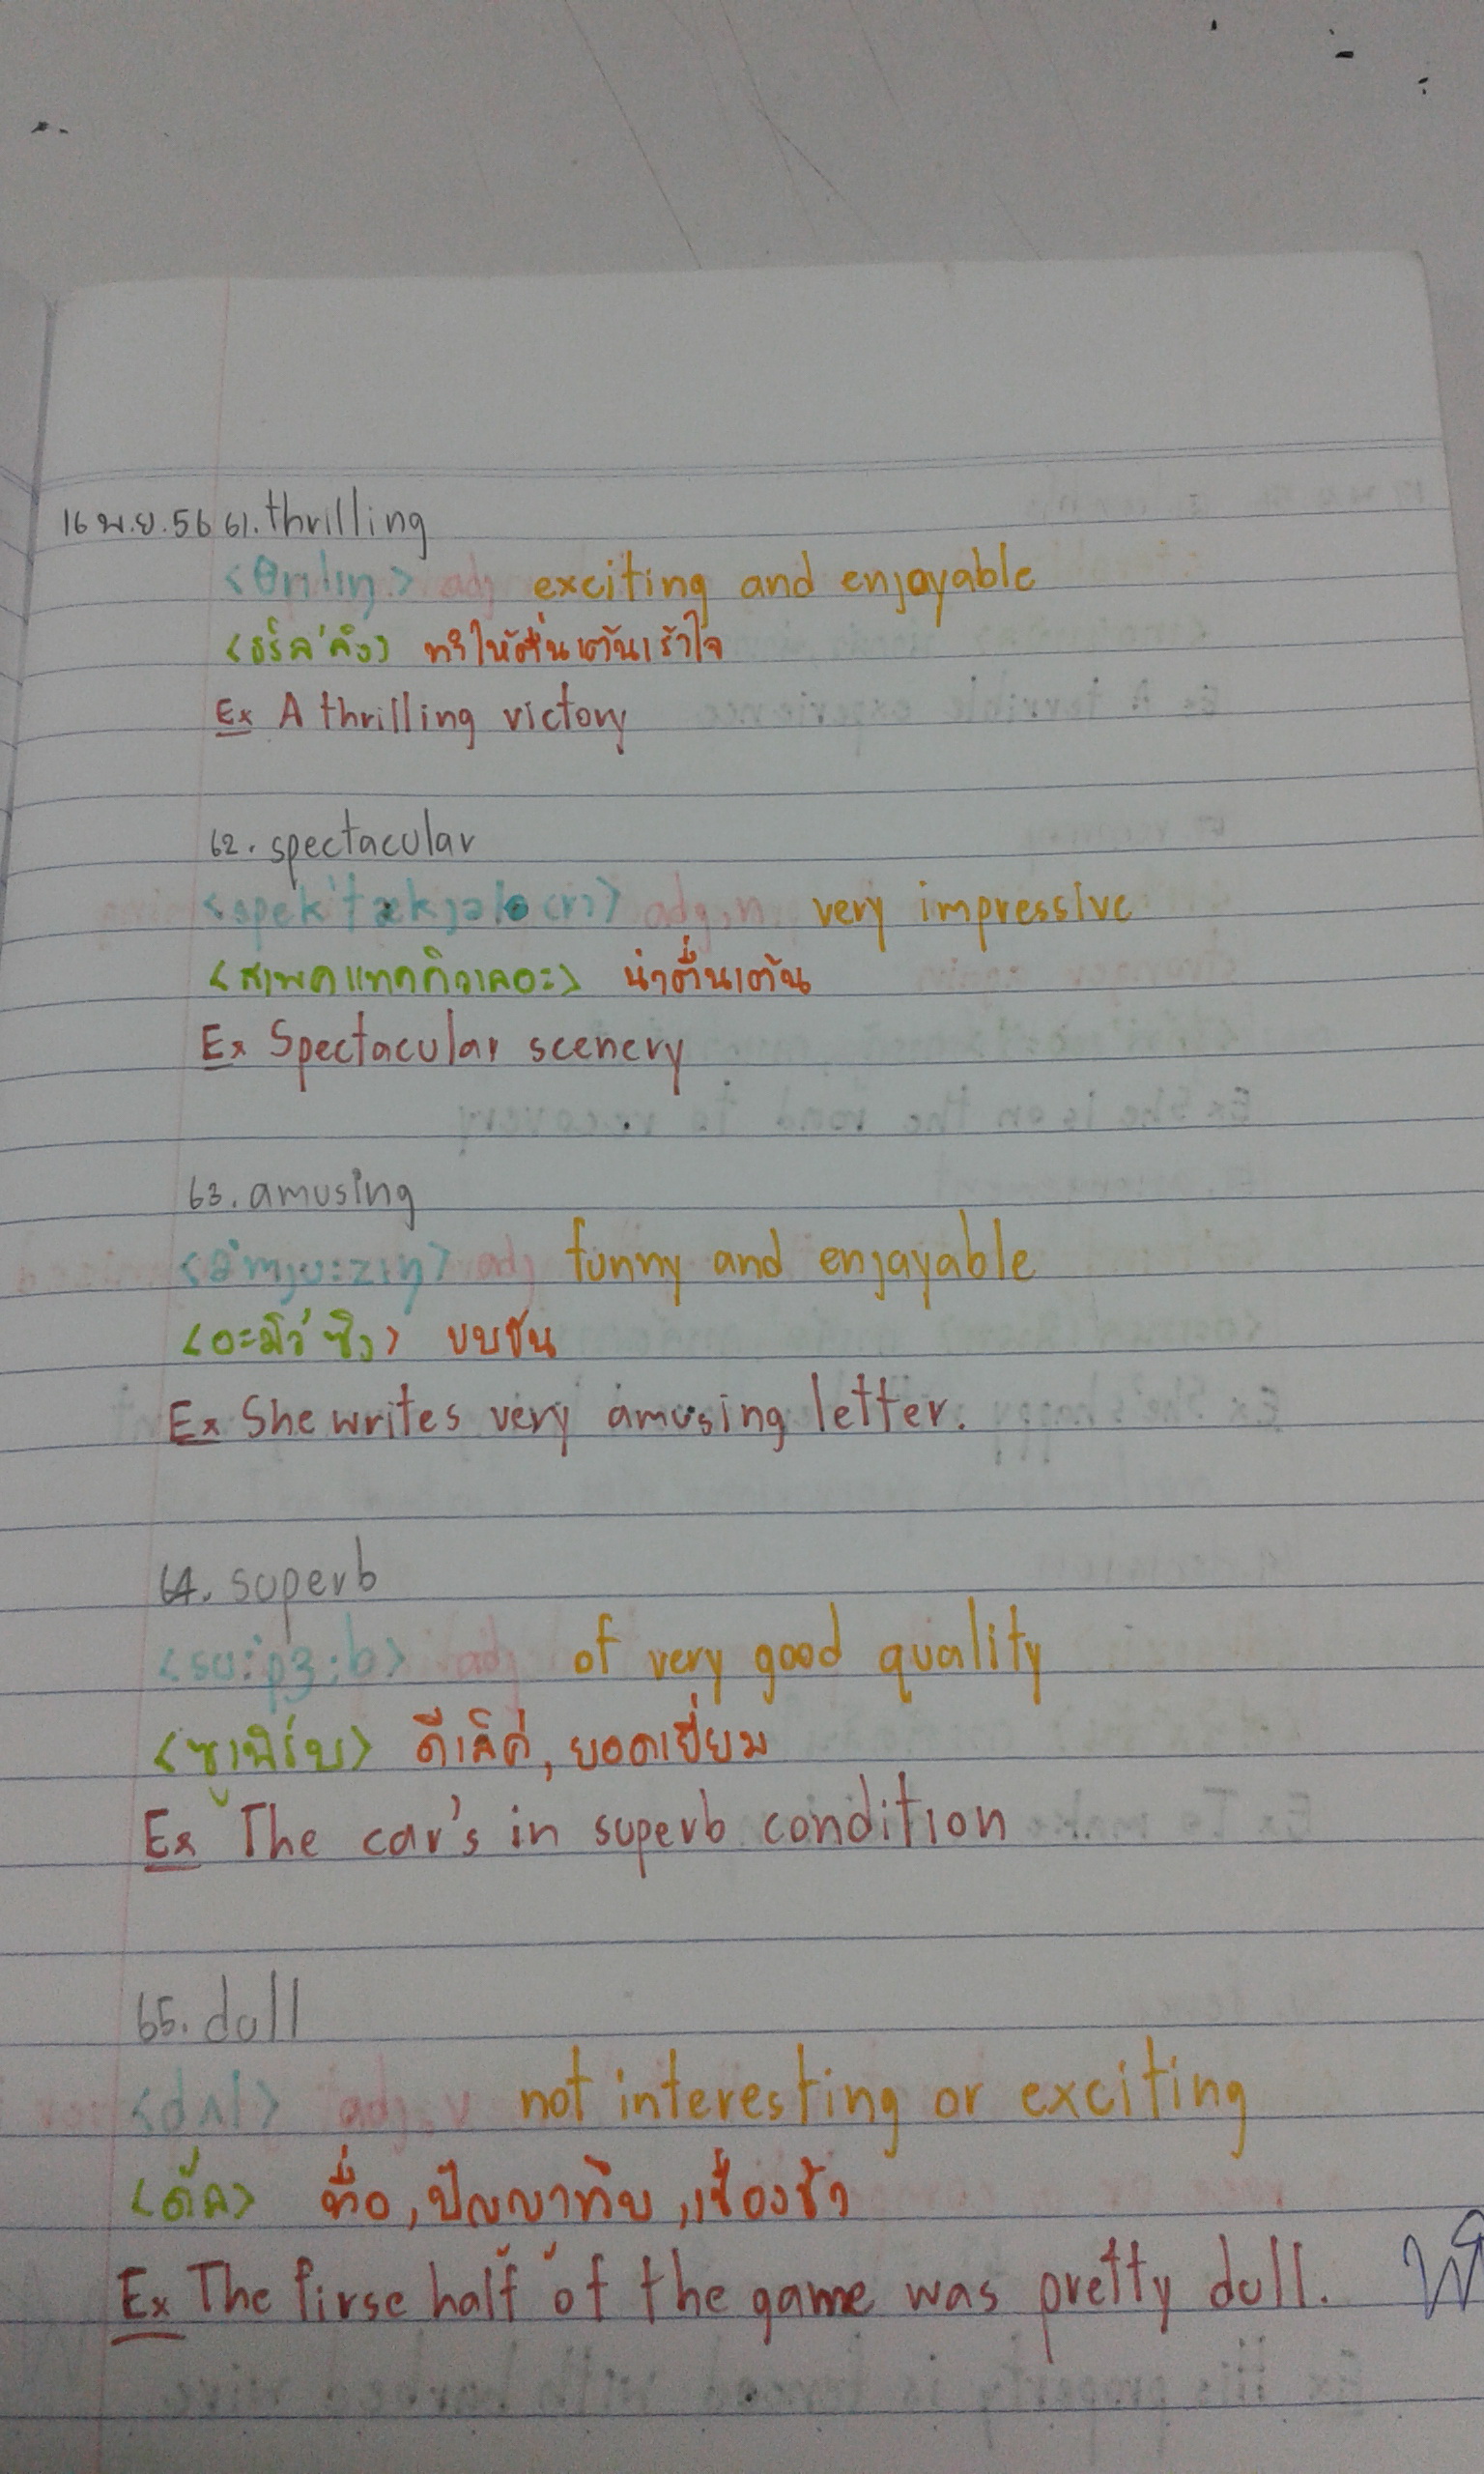 16 พ.ย. 56 61. thrilling
<θrɪlɪŋ> adj exciting and enjoyable
<ธริล'ลิง> ทำให้ตื่นเต้นเร้าใจ
Ex A thrilling victory
62. spectacular
adj, n very impressive
<สเพคแทคคิวเลอะ> น่าตื่นเต้น
Ex Spectacular scenery
63. amusing
adj funny and enjayable
<อะมิว'ซิง> ขบขัน
Ex She writes very amusing letter.
64. superb
<su:'pɜ:b> adj of very good quality
<ซูเพิร์บ> ดีเลิศ, ยอดเยี่ยม
Ex The car's in superb condition
65. dull
<dʌl> adj, v not interesting or exciting
<ดัล> ทื่อ, ปัญญาทึบ, เชื่องช้า
Ex The firse half of the game was pretty dull.